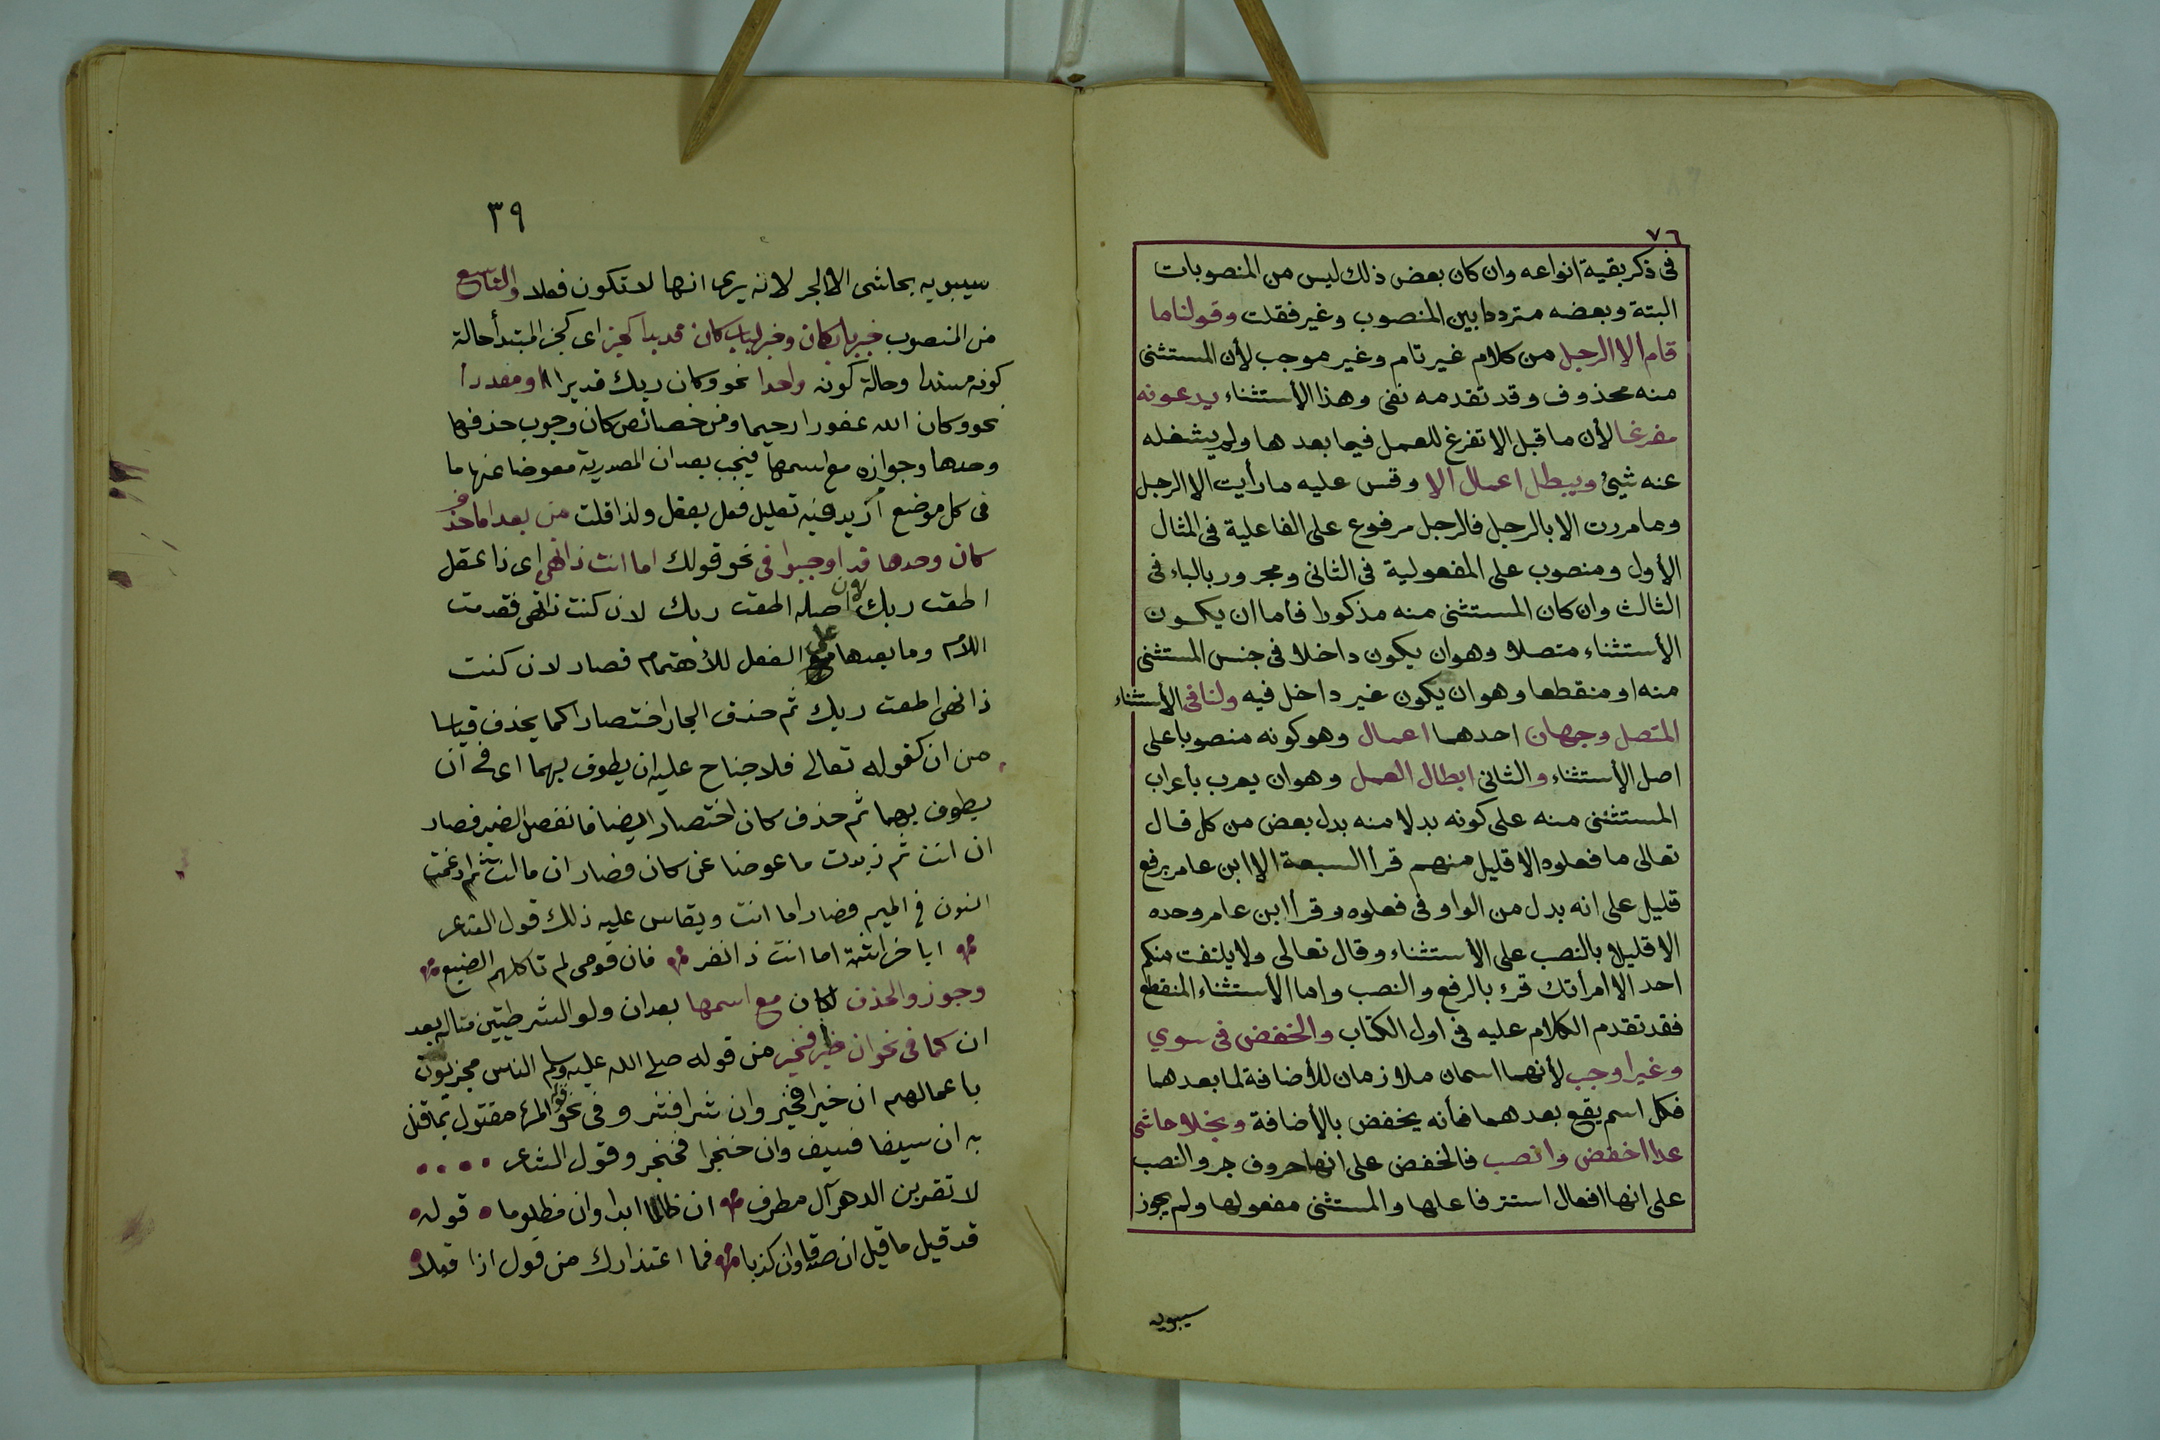 ٧٦
فى ذكر بقية انواعه وان كان بعض ذلك ليس من المنصوبات
البتة وبعضه مترددا بين المنصوب وغيره فقلت وقولنا ما
قام الا الرجل من كلام غير تام وغير موجب لأن المستثنى
منه محذوف وقد تقدمه نفى وهذا الأستثناء يدعونه
مفرغا لأن ما قبل الا تفرغ للعمل فيما بعدها ولم يشغله
عنه شيئ ويبطل اعمال الا وقس عليه ما رأيت الا الرجل
وما مررت الا بالرجل فالرجل مرفوع على الفاعلية فى المثال
الأول ومنصوب على المفعولية فى الثانى ومجرور بالباء فى
الثالث وان كان المستثنى منه مذكورا فاما ان يكون
الأستثناء متصلا وهو ان يكون داخلا فى جنس المستثنى
منه او منقطعا وهو ان يكون غير داخل فيه ولنا فى الأستثناء
المتصل وجهان احدهما اعمال وهو كونه منصوبا على
اصل الأستثناء والثانى ابطال العمل وهو ان يعرب بأعراب
المستثنى منه على كونه بدلا منه بدل بعض من كل قال
تعالى ما فعلوه الا قليل منهم قرأ السبعة الا ابن عامر برفع
قليل على انه بدل من الواو فى فعلوه وقرأ ابن عامر وحده
الا قليلا بالنصب على الأستثناء وقال تعالى ولا يلتفت منكم
احد الا امرأتك قرء بالرفع والنصب واما الأستثناء المنقطع
فقد تقدم الكلام عليه فى اول الكتاب والخفض فى سوي
وغير اوجب لأنهما اسمان ملازمان للأضافة لما بعدهما
فكل اسم يقع بعدهما فأنه يخفض بالأضافة وبخلا حاشى
عدا اخفض وانصب فالخفض على انها حروف جر والنصب
على انها افعال استتر فاعلها والمستثنى مفعولها ولم يجوز
سيبويه
٣٩
سيبويه بحاشى الا الجر لانه يرى انها لا تكون فعلا والتاسع
من المنصوب خبر باب كان وخبر لباب كان قد بدا كخبر اى كخبر المبتدأ حالة
كونه مبتدا وحالة كونه واحدا نحو وكان ربك قديرا او مفردا
نحو وكان الله غفورا رحيما ومن خصائص كان وجوب حذفها
وحدها وجوازه مع اسمها فيجب بعد ان المصدرية معوضا عنها ما
فى كل موضع أريد فيه تعليل فعل بفعل ولذا قلت من بعد اما حذف
كان وحدها قد اوجبوا فى نحو قولك اما انت ذا نهى اى ذا عقل
اطعت ربك لان اصله اطعت ربك لان كنت ذا نهى فقدمت
اللام وما بعدها على الفعل للأهتمام فصار لان كنت
ذا نهى اطعت ربك ثم حذف الجار اختصارا كما يحذف قياسا
من ان كقوله تعالى فلا جناح عليه ان يطوف بهما اى فى ان
يطوف بهما ثم حذف كان اختصارا ايضا فانفصل الضمير فصار
ان انت ثم زيدت ما عوضا عن كان فصار ان ما انت ثم ادغمت
النون فى الميم فصار اما انت ويقاس عليه ذلك قول الشاعر
ابا خراشة اما انت ذا نفر فان قومى لم تأكلهم الضبع
وجوزوا لحذف لكان مع اسمها بعد ان ولو الشرطيتين مثاله بعد
ان كما فى نحو ان خيرا فخير من قوله صلى الله عليه وسلم الناس مجزيون
باعمالهم ان خيرا فخير وان شرا فشر وفى نحو المرء مقتول بما قتل
به ان سيفا فسيف وان خنجرا فخنجر وقول الشاعر
لا تقربن الدهر آل مطرف ان ظالما ابدا وان مظلوما قوله
قد قيل ما قيل ان صدقا وان كذبا فما اعتذارك من قول اذا قيلا